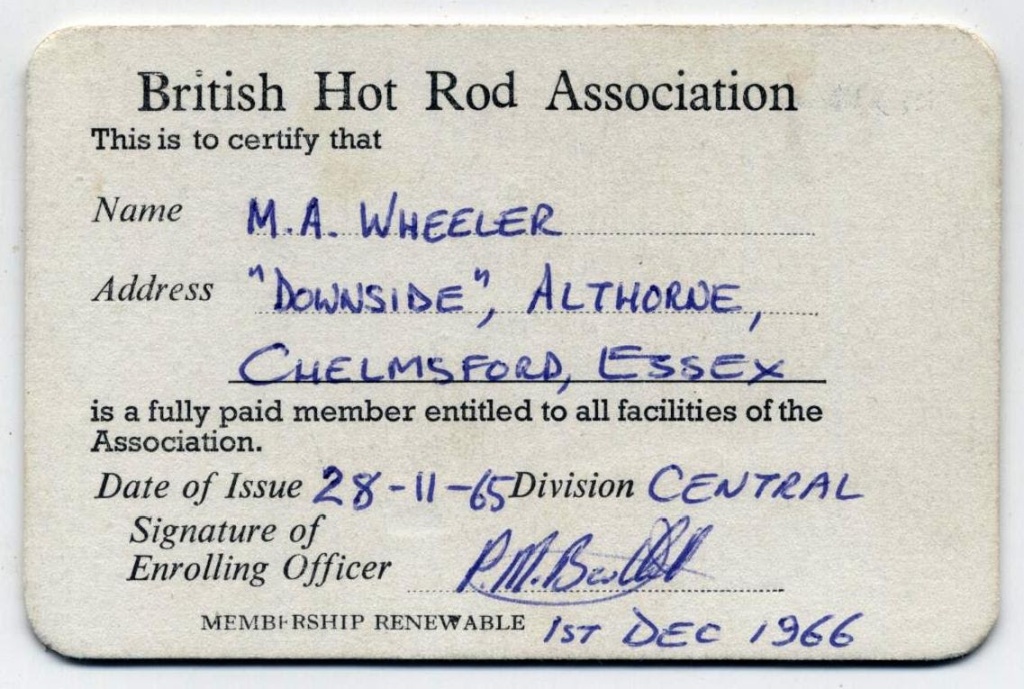 British Hot Rod Association
This is to certify that
Name M.A. WHEELER
Address "DOWNSIDE", ALTHORNE,
CHELMSFORD, ESSEX
is a fully paid member entitled to all facilities of the
Association.
Date of Issue 28-11-65 Division CENTRAL
Signature of
Enrolling Officer P.M.
MEMBERSHIP RENEWABLE 1ST DEC 1966